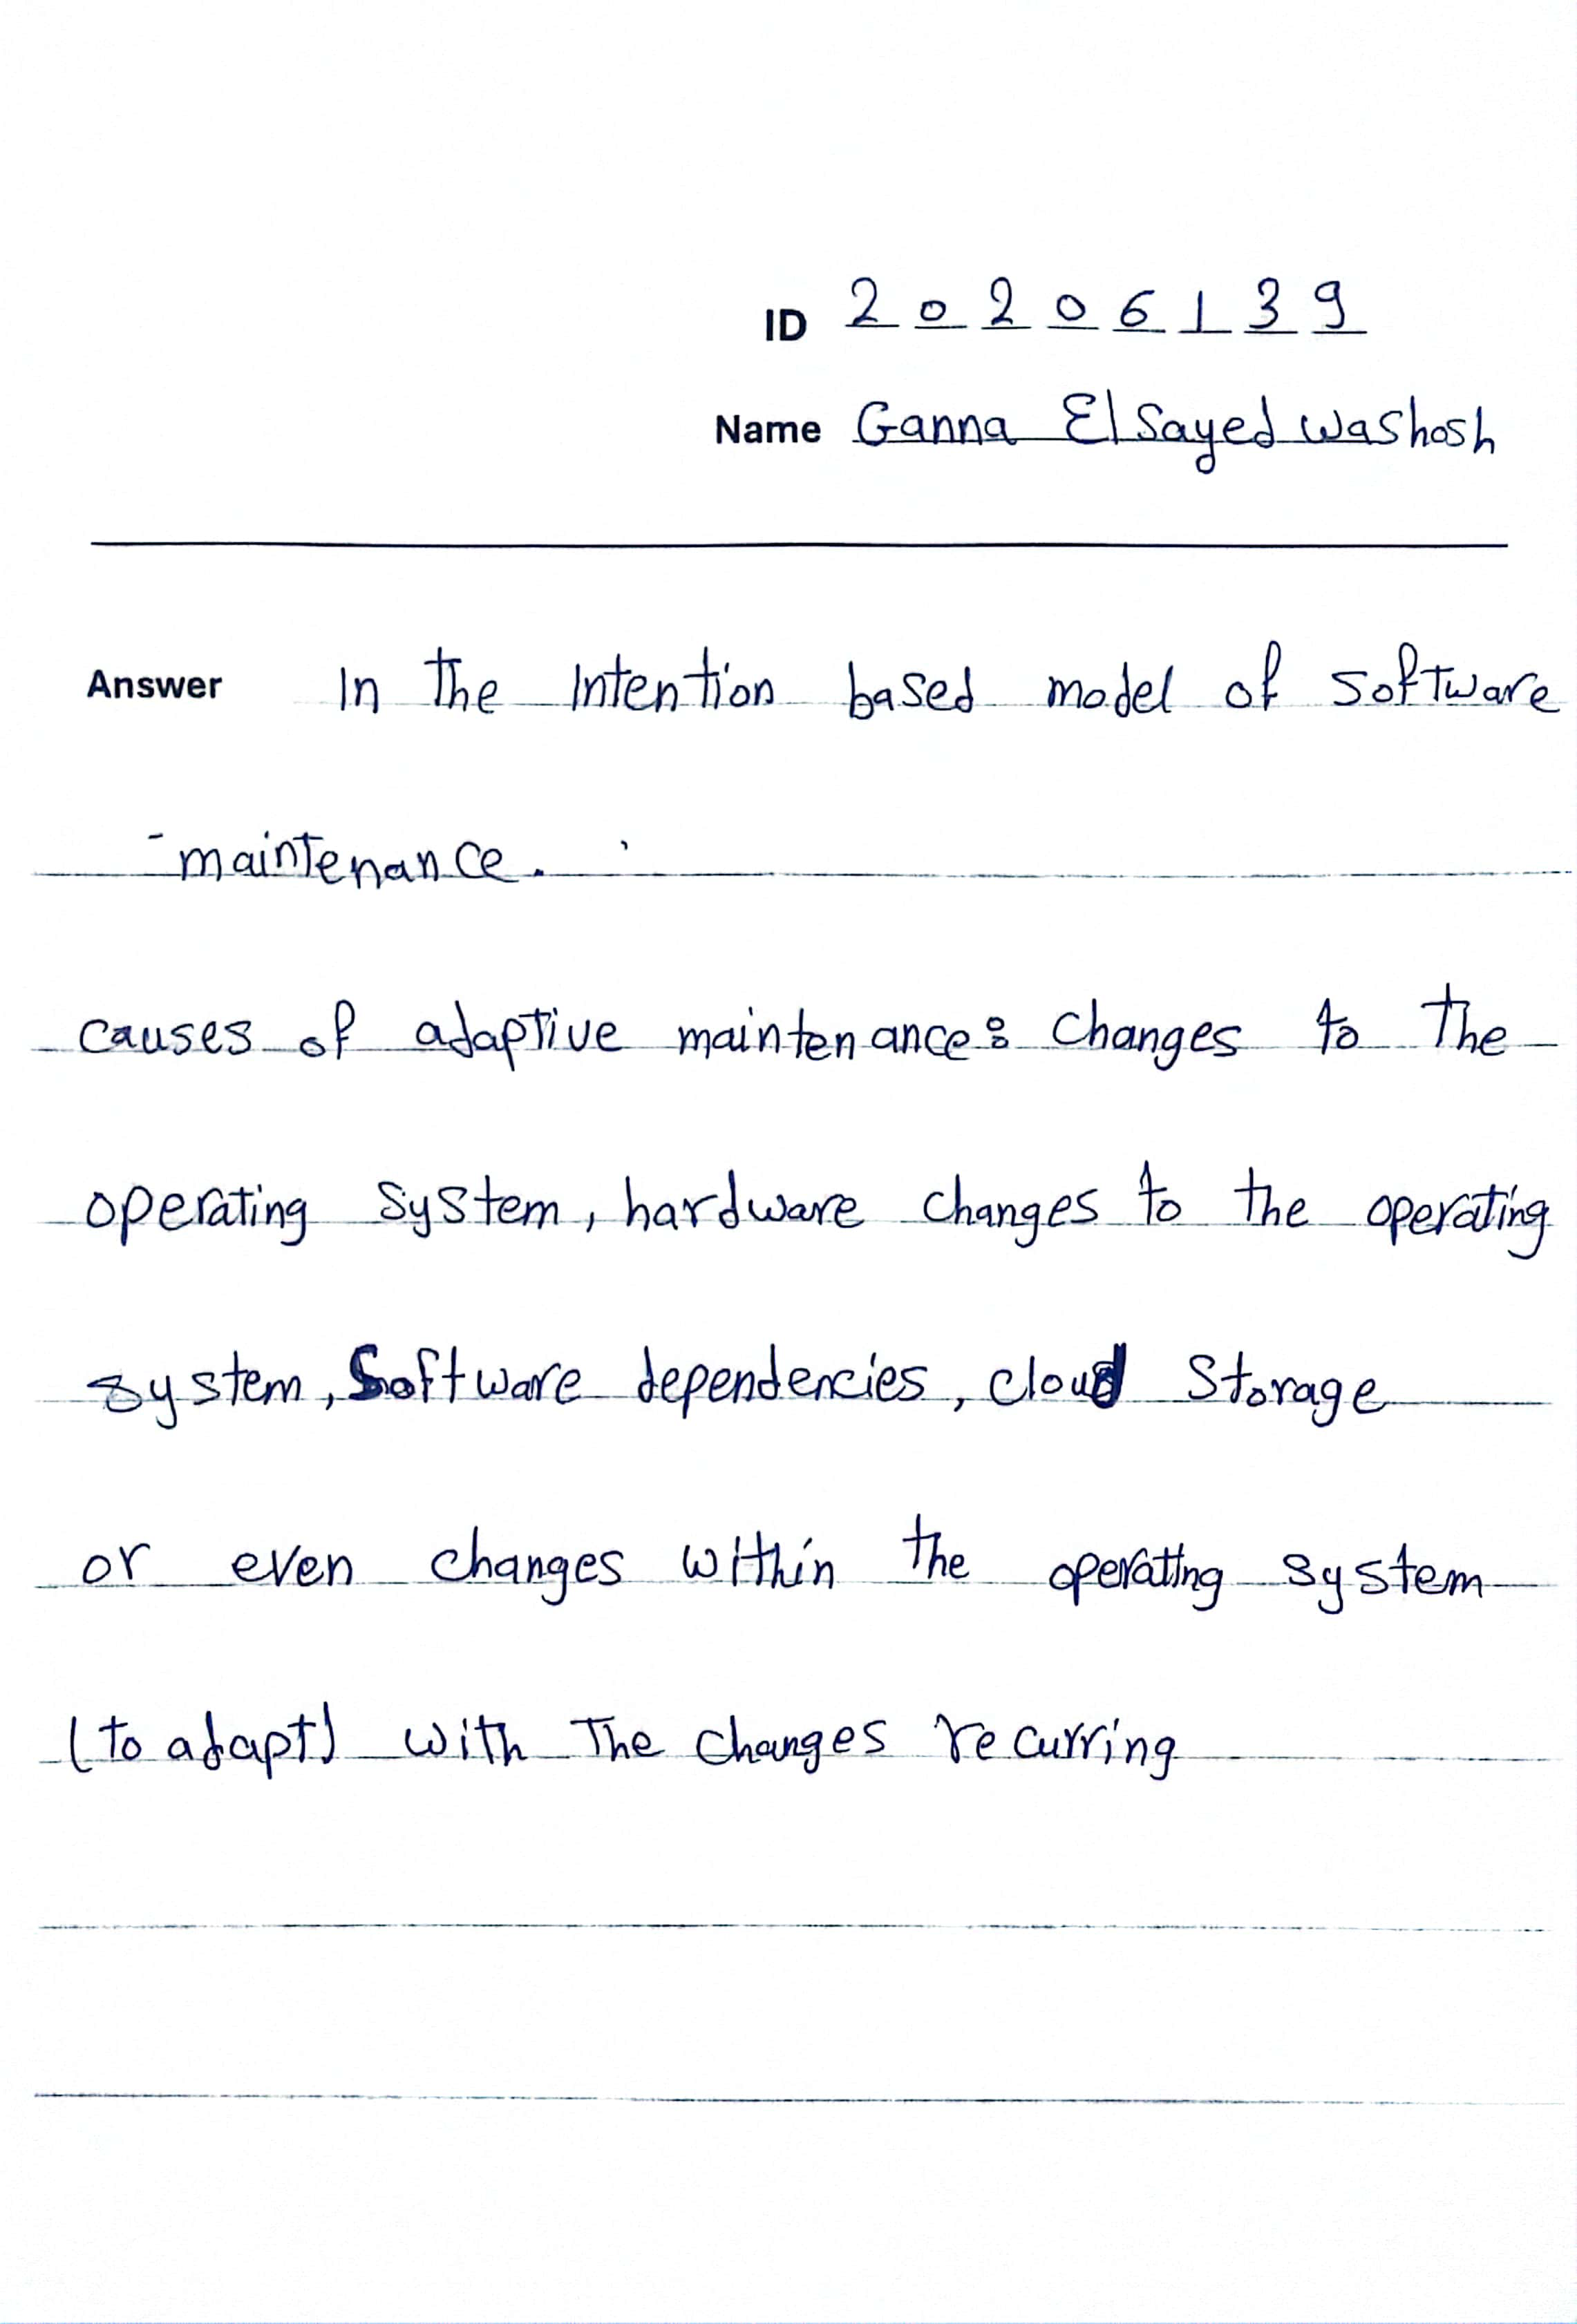 ID 20206139
Name Ganna ElSayed washosh
Answer In the Intention based model of software
-maintenance.
causes of adaptive maintenance: changes to the
operating system, hardware changes to the operating
system, Software dependencies, cloud Storage
or even changes within the operating system
(to adapt) with The changes recurring